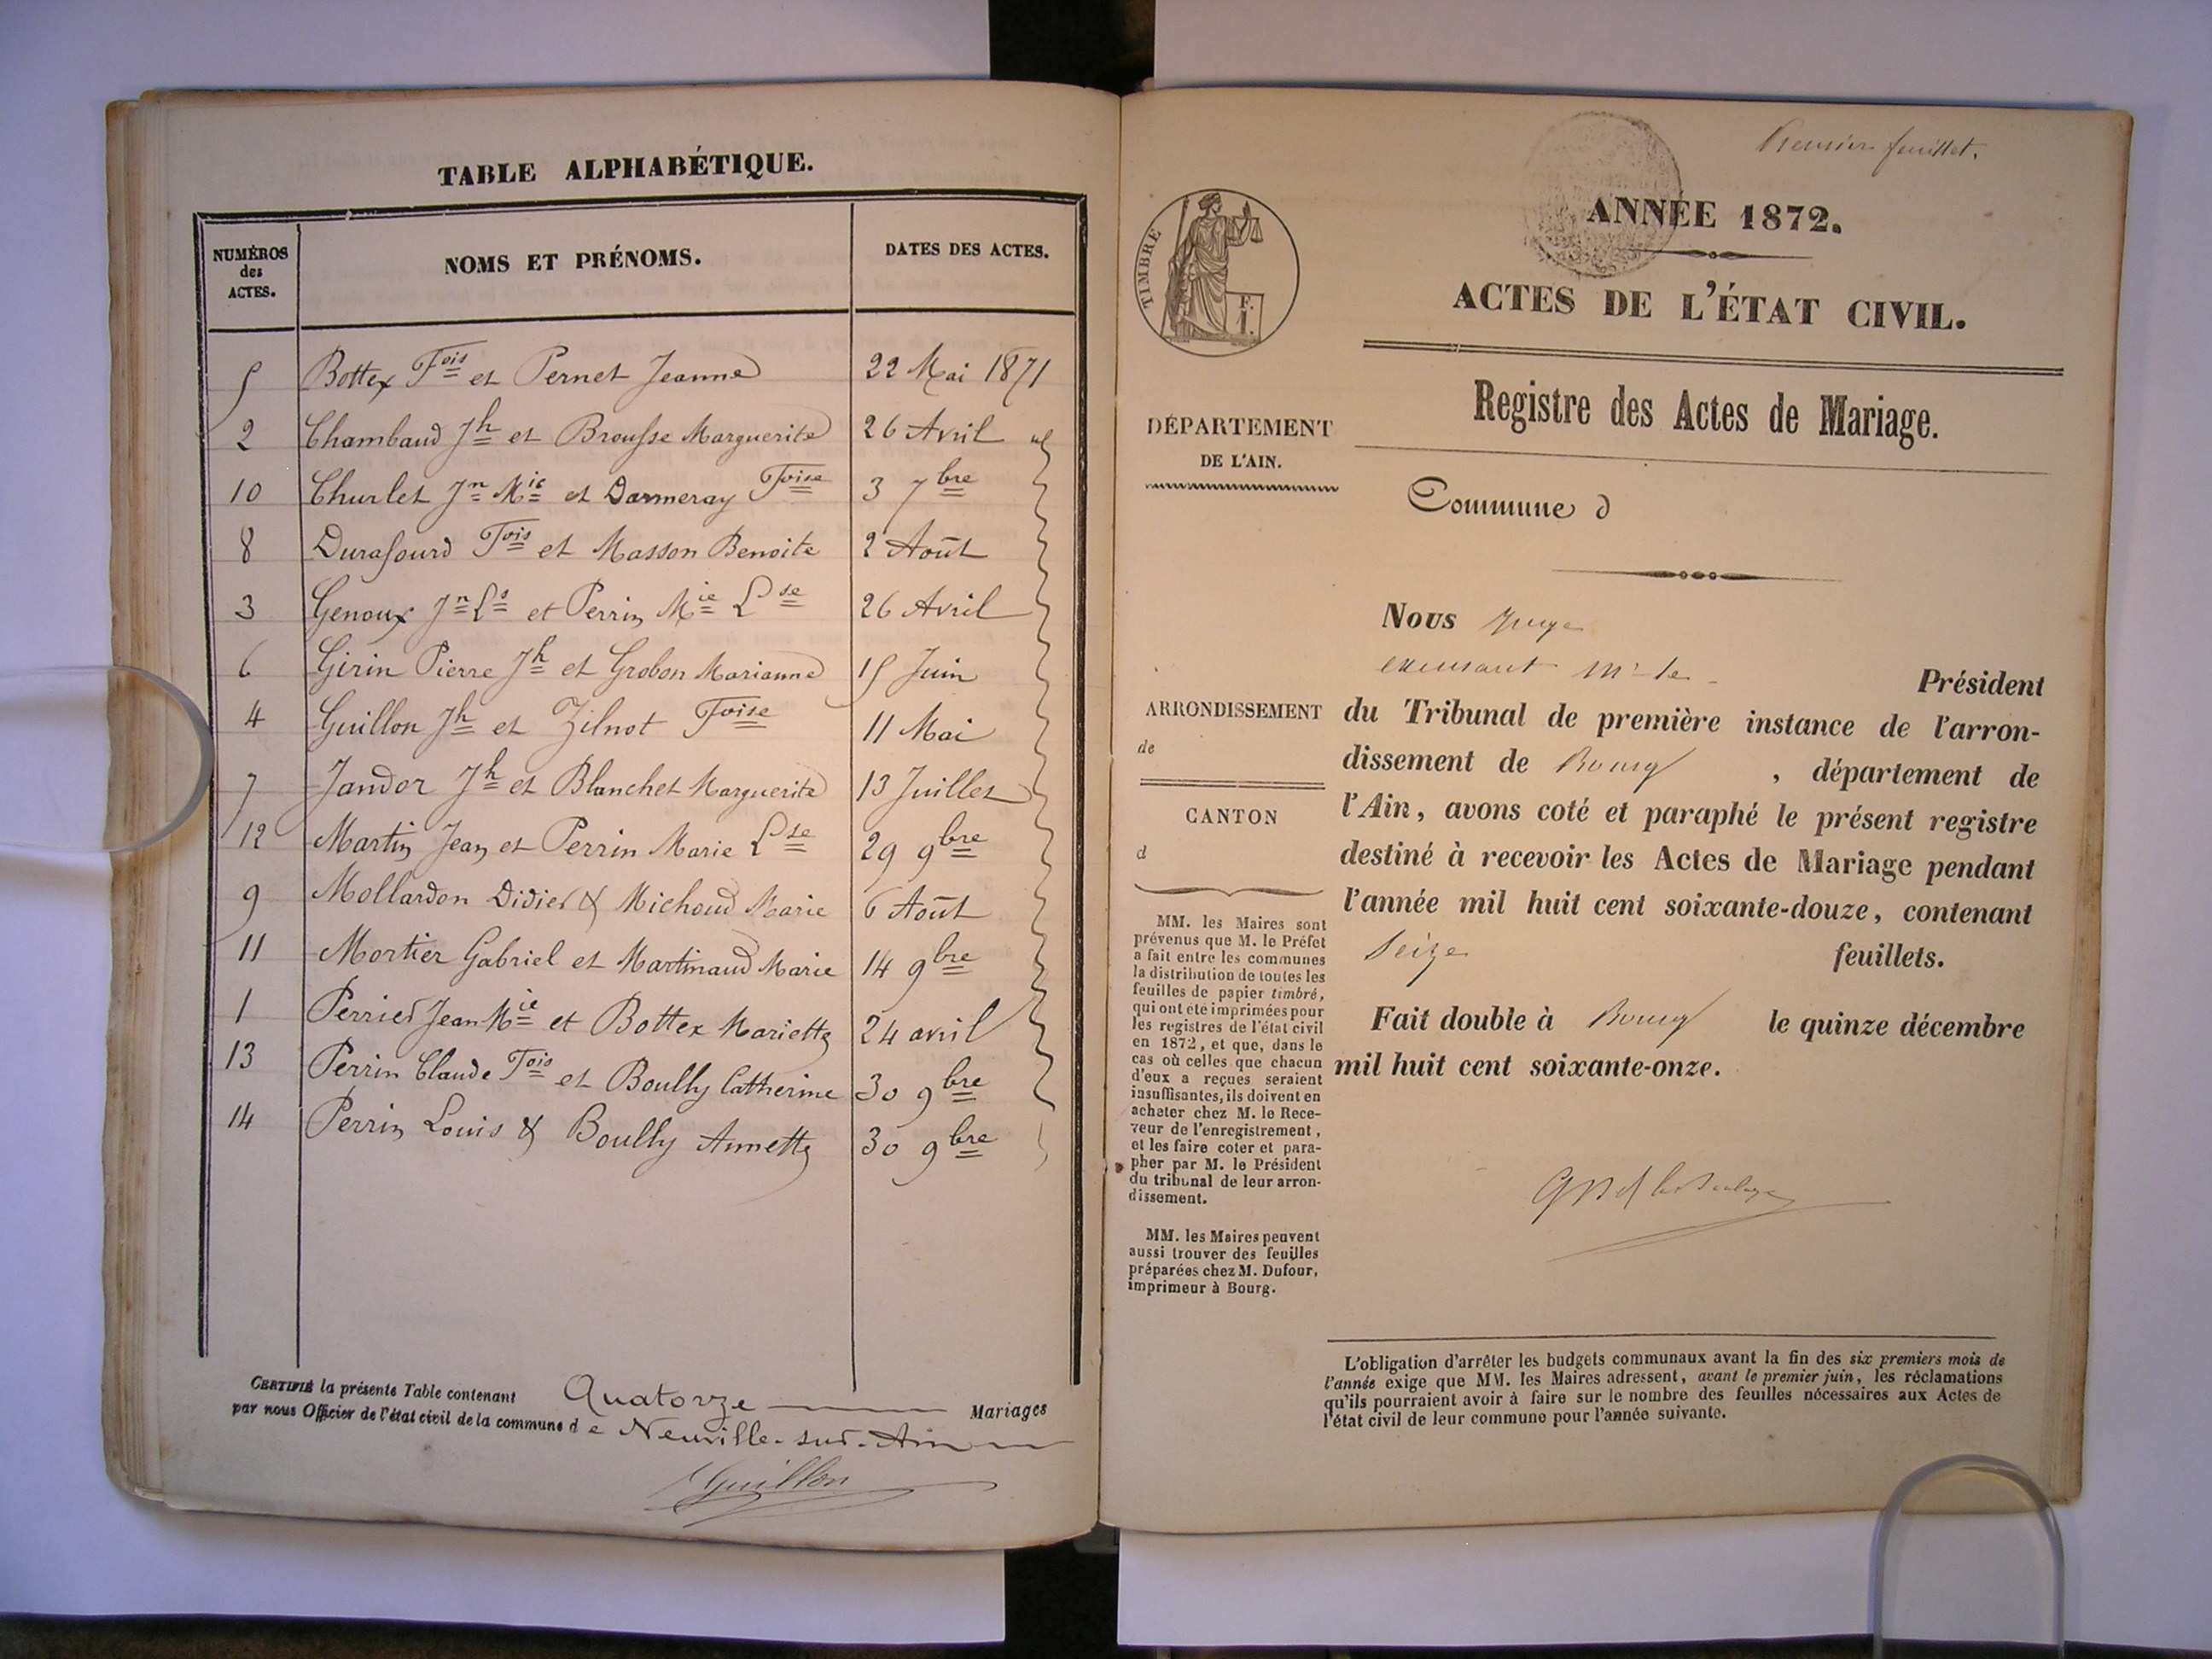 TABLE ALPHABÉTIQUE.
NUMÉROS des ACTES. NOMS ET PRÉNOMS. DATES DES ACTES.
5 Bottex Fois et Pernet Jeanne 22 Mai 1871
2 Chambaud Jh et Brousse Marguerite 26 Avril
10 Churlet Jn Mie et Darmeray Foise 3 7bre
8 Durafourd Fois et Masson Benoite 2 Août
3 Genoux Jn Ls et Perrin Mie Lse 26 Avril
6 Girin Pierre Jh et Grobon Marianne 15 Juin
4 Guillon Jh et Zilnot Foise 11 Mai
7 Jandor Jh et Blanchet Marguerite 13 Juillet
12 Martin Jean et Perrin Marie Lse 29 9bre
9 Mollardon Didier & Michoud Marie 6 Août
11 Mortier Gabriel et Martinaud Marie 14 9bre
1 Perrier Jean Mie et Bottex Mariette 24 avril
13 Perrin Claude Fois et Boully Catherine 30 9bre
14 Perrin Louis & Boully Annette 30 9bre
CERTIFIÉ la présente Table contenant Quatorze Mariages
par nous Officier de l'état civil de la commune de Neuville-sur-Ain
Guillon
Premier feuillet.
TIMBRE
F.
I.
ANNÉE 1872.
ACTES DE L'ÉTAT CIVIL.
Registre des Actes de Mariage.
DÉPARTEMENT
DE L'AIN.
Commune d
ARRONDISSEMENT
de
CANTON
d
MM. les Maires sont
prévenus que M. le Préfet
a fait entre les communes
la distribution de toutes les
feuilles de papier timbré,
qui ont été imprimées pour
les registres de l'état civil
en 1872, et que, dans le
cas où celles que chacun
d'eux a reçues seraient
insuffisantes, ils doivent en
acheter chez M. le Rece-
veur de l'enregistrement,
et les faire coter et para-
pher par M. le Président
du tribunal de leur arron-
dissement.
MM. les Maires peuvent
aussi trouver des feuilles
préparées chez M. Dufour,
imprimeur à Bourg.
Nous Juge
Mr le Président
du Tribunal de première instance de l'arron-
dissement de Bourg, département de
l'Ain, avons coté et paraphé le présent registre
destiné à recevoir les Actes de Mariage pendant
l'année mil huit cent soixante-douze, contenant
Seize feuillets.
Fait double à Bourg le quinze décembre
mil huit cent soixante-onze.
L'obligation d'arrêter les budgets communaux avant la fin des six premiers mois de
l'année exige que MM. les Maires adressent, avant le premier juin, les réclamations
qu'ils pourraient avoir à faire sur le nombre des feuilles nécessaires aux Actes de
l'état civil de leur commune pour l'année suivante.